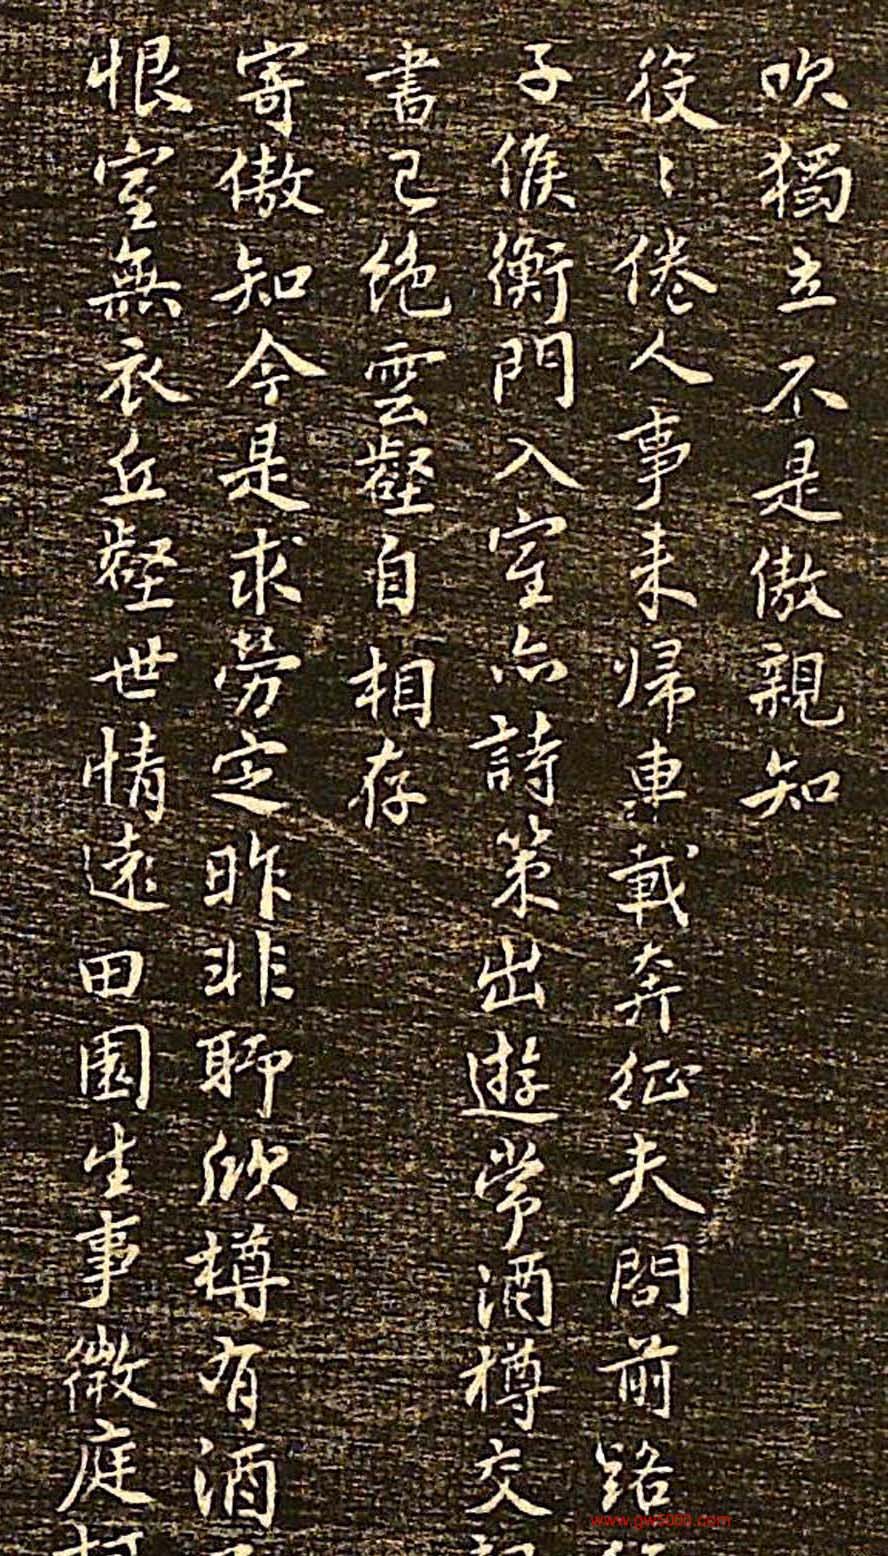 吹獨立不是傲親知
役〻倦人事来歸車載奔征夫問前路
子候衡門入室亦詩策出遊常酒樽交
書已絶雲壑自相存
寄傲知今是求勞定昨非聊欣樽有酒
恨室無衣丘壑世情遠田園生事微庭柯
www.gw5000.com